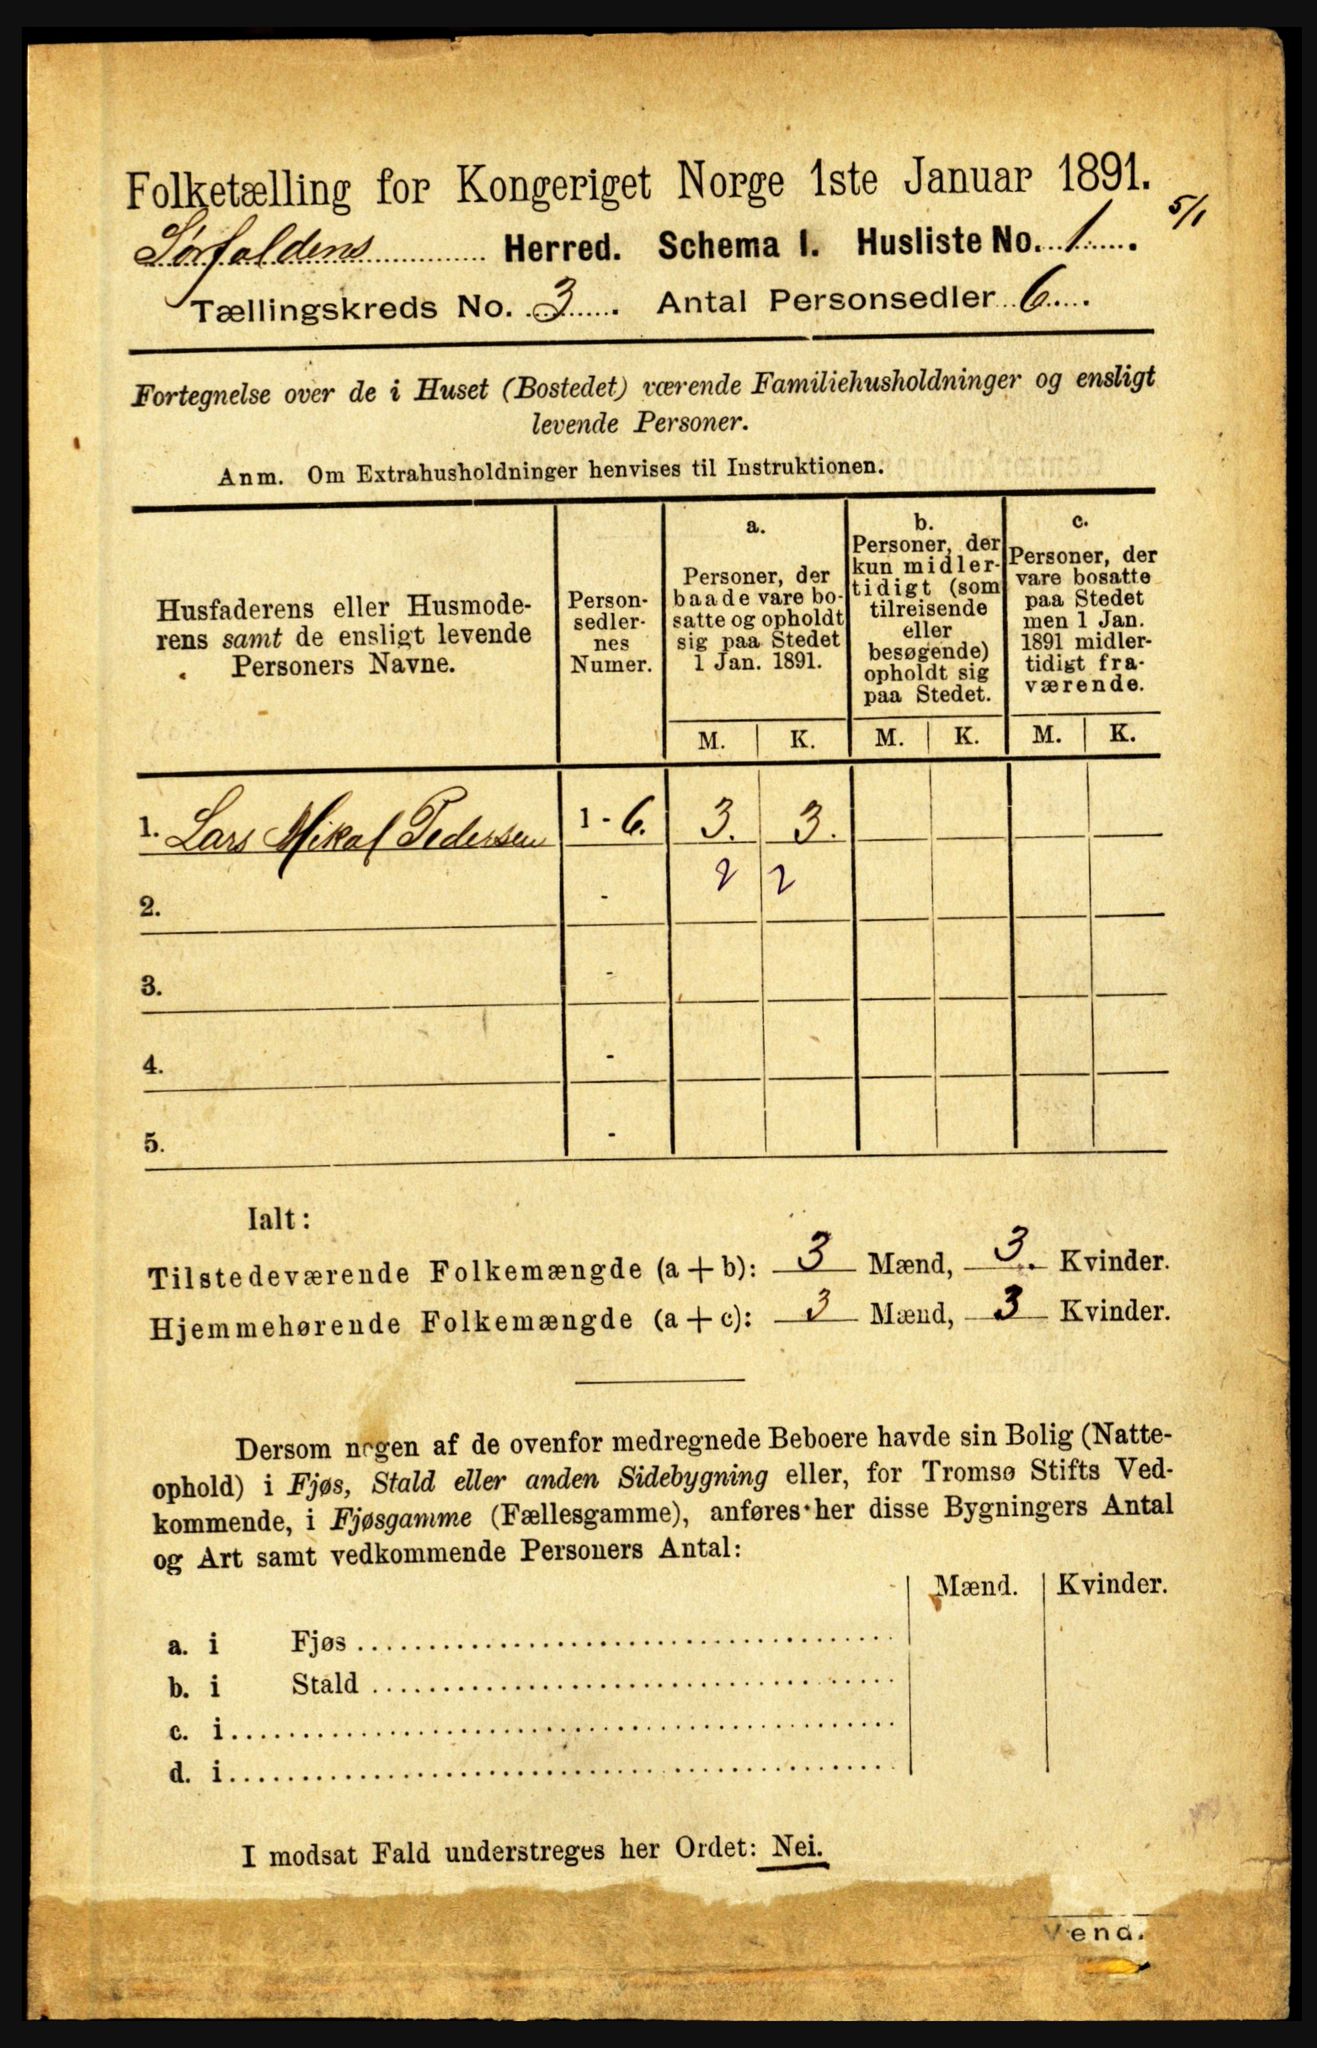 Folketælling for Kongeriget Norge 1ste Januar 1891.
5/1
Sørfoldens Herred. Schema I. Husliste No. 1.
Tællingskreds No. 3. Antal Personsedler 6.
Fortegnelse over de i Huset (Bostedet) værende Familiehusholdninger og ensligt
levende Personer.
Anm. Om Extrahusholdninger henvises til Instruktionen.
Husfaderens eller Husmode-
rens samt de ensligt levende
Personers Navne.
Person-
sedler-
nes
Numer.
a.
Personer, der
baade vare bo-
satte og opholdt
sig paa Stedet
1 Jan. 1891.
b.
Personer, der
kun midler-
tidigt (som
tilreisende
eller
besøgende)
opholdt sig
paa Stedet.
c.
Personer, der
vare bosatte
paa Stedet
men 1 Jan.
1891 midler-
tidigt fra-
værende.
M. K. M. K. M. K.
1. Lars Mikal Pedersen 1 - 6. 3. 3.
2 2
2. -
3. -
4. -
5. -
Ialt:
Tilstedeværende Folkemængde (a + b): 3 Mænd, 3. Kvinder.
Hjemmehørende Folkemængde (a + c): 3 Mænd, 3 Kvinder.
Dersom nogen af de ovenfor medregnede Beboere havde sin Bolig (Natte-
ophold) i Fjøs, Stald eller anden Sidebygning eller, for Tromsø Stifts Ved-
kommende, i Fjøsgamme (Fællesgamme), anføres her disse Bygningers Antal
og Art samt vedkommende Personers Antal:
Mænd. Kvinder.
a. i Fjøs
b. i Stald
c. i
d. i
I modsat Fald understreges her Ordet: Nei.
Vend.